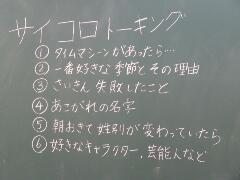 サイコロトーキング
① タイムマシーンがあったら…
② 一番好きな季節とその理由
③ さいきん失敗したこと
④ あこがれの名字
⑤ 朝おきて性別が変わっていたら
⑥ 好きなキャラクター、芸能人など